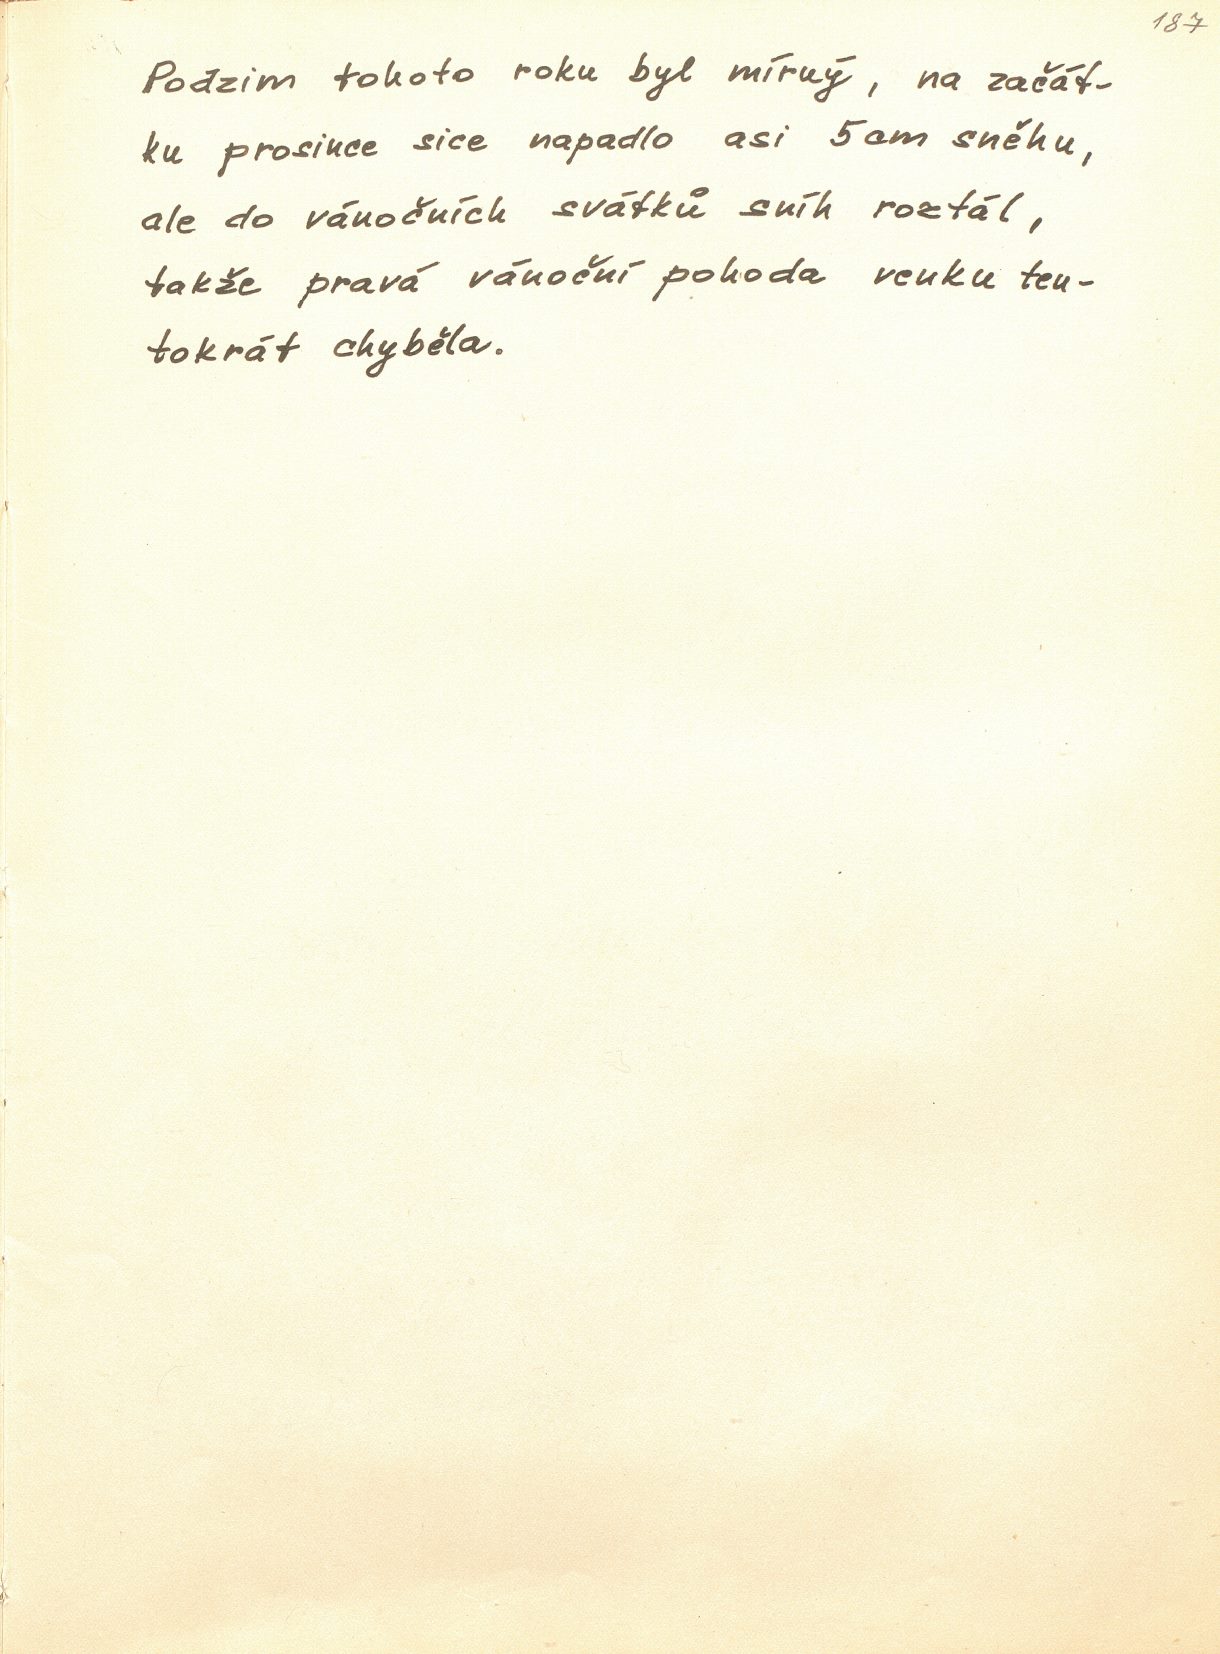 187
Podzim tohoto roku byl mírný, na začát-
ku prosince sice napadlo asi 5cm sněhu,
ale do vánočních svátků sníh roztál,
takže pravá vánoční pohoda venku ten-
tokrát chyběla.